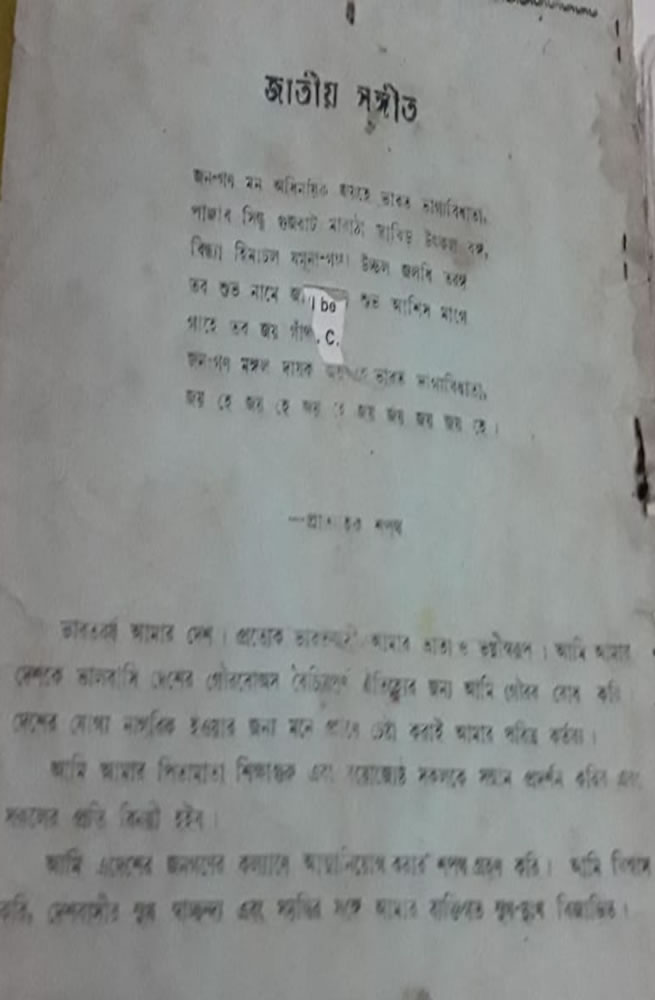 জাতীয় সঙ্গীত
জনগণ মন অধিনায়ক জয়হে ভারত ভাগ্যবিধাতা,
পাঞ্জাব সিন্ধু গুজরাট মারাঠা দ্রাবিড় উৎকল বঙ্গ,
বিন্ধ্য হিমাচল যমুনা-গঙ্গা উচ্ছল জলধি তরঙ্গ
তব শুভ নামে শুভ আশিস মাগে
be
গাহে তব জয়
C.
জনগণ মঙ্গল দায়ক ভারত ভাগ্যবিধাতা,
জয় হে জয় হে জয় হে জয় জয় জয় জয় হে।
শপথ
ভারতবর্ষ আমার দেশ। প্রত্যেক ভারতবাসী আমার ভ্রাতা ও ভগ্নীস্বরূপ। আমি আমার
দেশকে ভালবাসি দেশের গৌরবোজ্জ্বল জন্য আমি গৌরব বোধ করি।
দেশের যোগ্য নাগরিক হওয়ার জন্য মনে প্রাণে চেষ্টা করাই আমার পবিত্র কর্তব্য।
আমি আমার পিতামাতা শিক্ষক এবং সকলকে সম্মান প্রদর্শন করিব এবং
সকলের প্রতি বিনয়ী হইব।
আমি দেশের জনগণের কল্যাণে আত্মনিয়োগ করার শপথ গ্রহণ করি। আমি বিশ্বাস
করি, দেশবাসীর সুখ এবং সমৃদ্ধির সঙ্গে আমার ব্যক্তিগত সুখ-দুঃখ বিজড়িত।